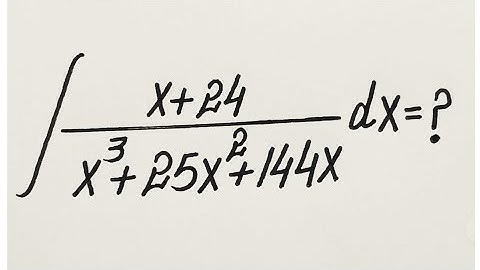 ∫ x+24 / x³+25x²+144x dx=?